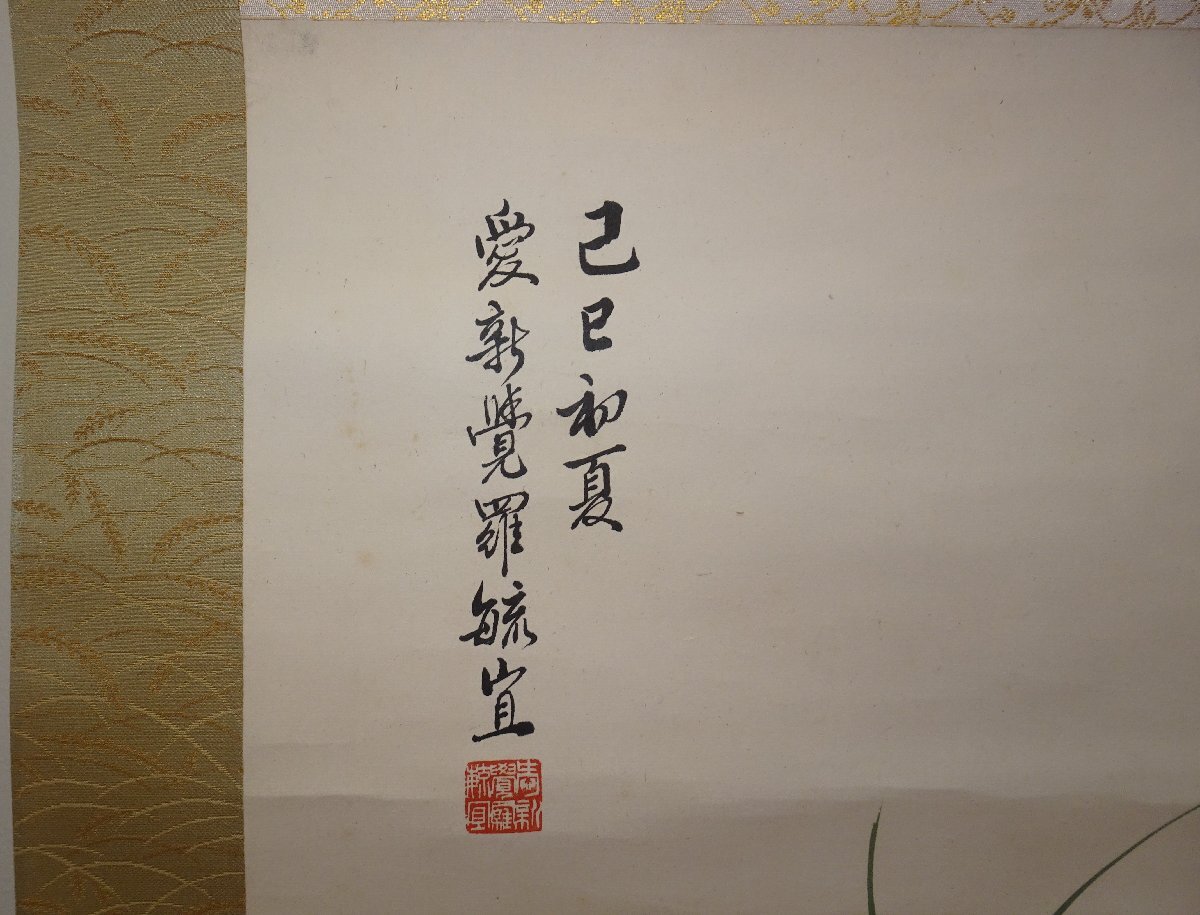 己巳初夏
愛新覺羅毓峘
愛新覺羅毓峘